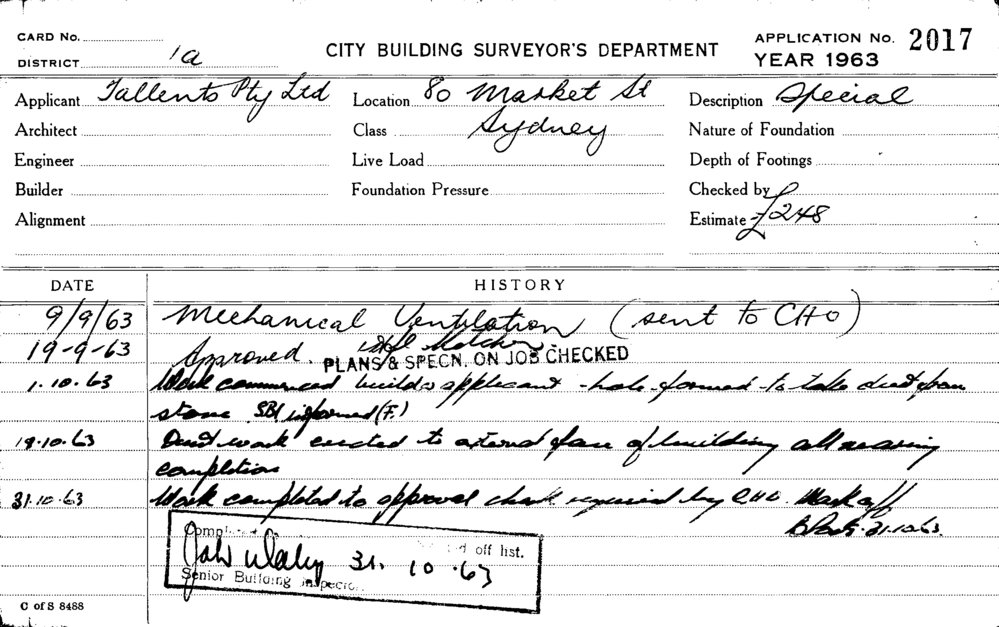 CARD No.
DISTRICT 1a
CITY BUILDING SURVEYOR'S DEPARTMENT
APPLICATION No. 2017
YEAR 1963
Applicant Tallents Pty Ltd
Location 80 Market St
Description Special
Architect
Class Sydney
Nature of Foundation
Engineer
Live Load
Depth of Footings
Builder
Foundation Pressure
Checked by
Alignment
Estimate £248
DATE HISTORY
9/9/63 Mechanical Ventilation (sent to CHO)
19-9-63 Approved.
PLANS & SPECN. ON JOB CHECKED
1.10.63 Work commenced builder applicant - hole formed to take duct from
stone SBI informed (F.)
18.10.63 Duct work erected to external face of building all nearing
completion
31.10.63 Work completed to approval check required by CHO. Mark off
31.10.63.
off list.
31. 10 .63
Senior Building Inspector
C of S 8488